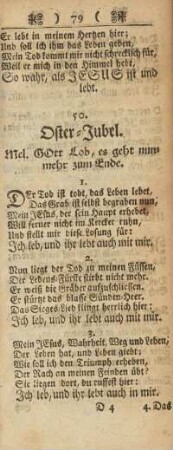 79
Er lebt in meinem Hertzen hier;
Und soll ich ihm das Leben geben,
Mein Tod kommt mir nicht schrecklich für,
Weil er mich in den Himmel hebt,
So wahr, als JESUS ist und
lebt.
50.
Oster-Jubel.
Mel. GOtt Lob, es geht nun-
mehr zum Ende.
1.
DEr Tod ist todt, das Leben lebet,
Das Grab ist selbst begraben nun,
Mein JEsus, der sein Haupt erhebet,
Will ferner nicht im Kercker ruhn,
Und stellt mir diese Losung für:
Ich leb, und ihr lebt auch in mir.
2.
Nun liegt der Tod zu meinen Füssen,
Der Lebens-Fürste stirbt nicht mehr.
Er weiß die Gräber aufzuschliessen.
Er stürtzt das blasse Sünden-Heer.
Das Sieges-Lied klingt herrlich hier:
Ich leb, und ihr lebt auch in mir.
3.
Mein JEsus, Wahrheit, Weg und Leben,
Der Leben hat, und Leben giebt:
Wie soll ich den Triumph erheben,
Der Rach an meinen Feinden übt?
Sie liegen dort, du ruffest hier:
Ich leb, und ihr lebt auch in mir.
D 4 4. Das